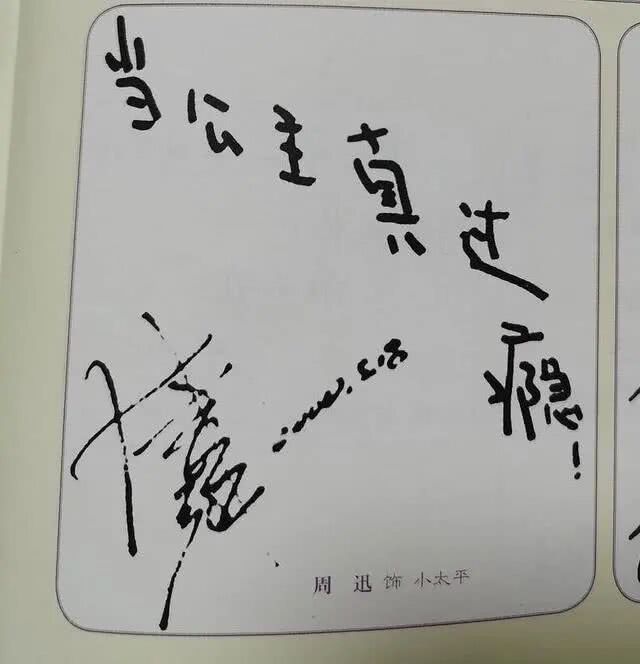 当公主真过瘾!
周 迅 饰 小太平